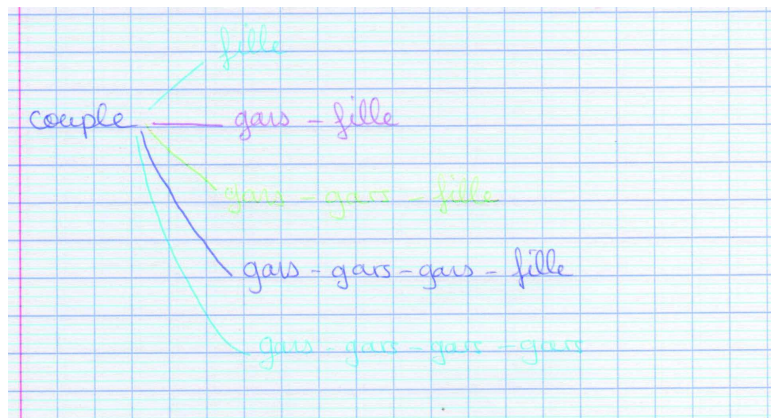 fille
couple gars - fille
gars - gars - fille
gars - gars - gars - fille
gars - gars - gars - gars